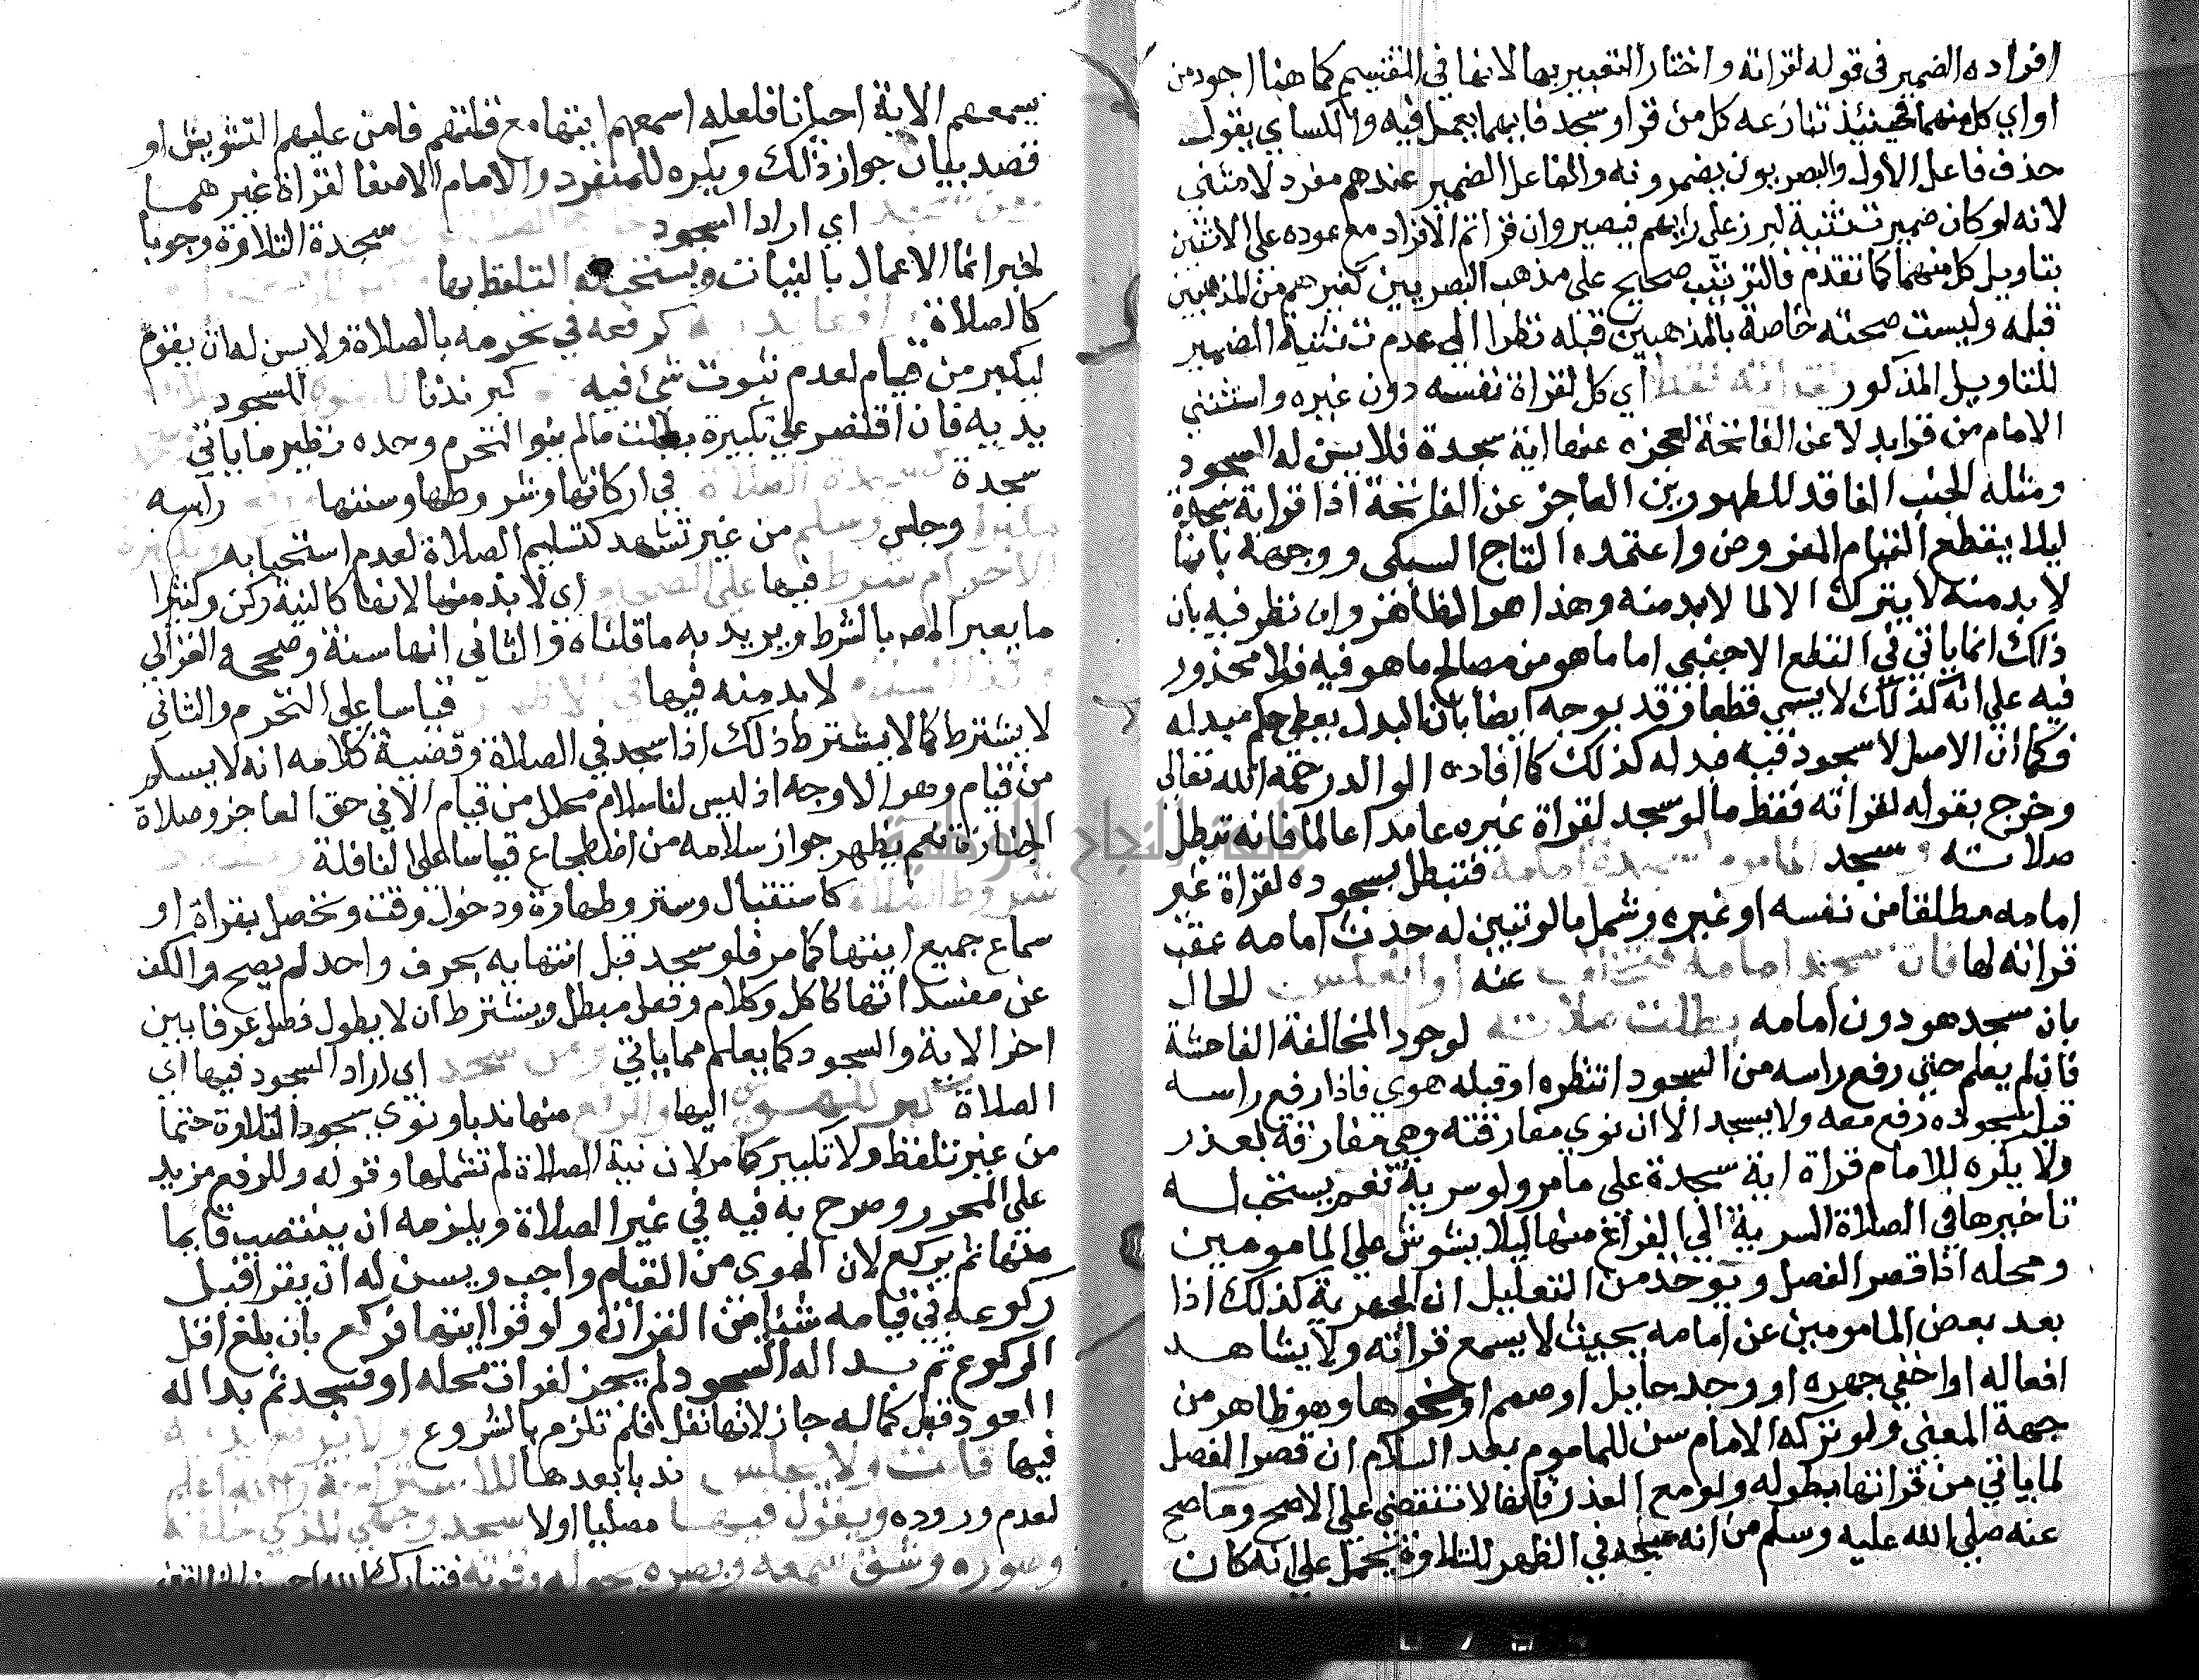 افراده الضمير في قوله لقراته واختار التعبير بها لانها في التقسيم كما هنا اجود من
او اي كل منهما فحينئذ تنازعه كل من قرا وسجد فايهما يعمل فيه والكساي يقول
حذف فاعل الاول والبصريون يضمرونه والفاعل الضمير عندهم مفرد لا مثنى
لانه لو كان ضمير تثنية لبرز على رايهم فيصير وان قراتم الافراد مع عوده على الاثنين
بتاويل كل منهما كما تقدم فالتركيب صحيح على مذهب البصريين كغيرهم من المذهبين
قبله وليست صحته خاصة بالمذهبين قبله نظرا الى عدم تثنية الضمير
للتاويل المذكور لقرانه فقط اي كل لقراة نفسه دون غيره واستثني
الامام من قرا بدلا عن الفاتحة لعجزه عنها اية سجدة فلا يسن له السجود
ومثله الجنب الفاقد للطهورين العاجز عن الفاتحة اذا قرا اية سجدة
ليلا يقطع القيام المفروض واعتمده التاج السبكي ووجهه بانما
لا بد منه لا يترك الا لما لا بد منه وهذا هو الظاهر وان نظر فيه بان
ذلك انما ياتي في القطع الاجنبي اما ما هو من مصالح ما هو فيه فلا محذور
فيه على انه كذلك لا يسمي قطعا وقد يوجه ايضا بان البدل يعطى حكم مبدله
فكما ان الاصل لا سجود فيه فبدله كذلك كما افاده الوالد رحمه الله تعالى
وخرج بقوله لقراته فقط ما لو سجد لقراة غيره عامدا عالما فانه تبطل
صلاته و سجد الماموم لسجدة امامه فتبطل بسجوده لقراة غير
امامه مطلقا من نفسه او غيره وشمل ما لو تبين له حدث امامه عقب
قراته لها فان سجد امامه فتخلف عنه او انعكس للحال
بان سجد هو دون امامه بطلت صلاته لوجود المخالفة الفاحشة
فان لم يعلم حتى رفع راسه من السجود انتظره او قبله هوي فاذا رفع راسه
قبل سجوده رفع معه ولا يسجد الا ان نوي مفارقته وهي مفارقة بعذر
ولا يكره للامام قراة اية سجدة على ما مر ولو سرية نعم يستحب له
تاخيرها في الصلاة السرية الي الفراغ منها ليلا يشوش على المامومين
ومحله اذا قصر الفصل ويوخذ من التعليل ان الجهرية كذلك اذا
بعد بعض المامومين عن امامه بحيث لا يسمع قراته ولا يشاهد
افعاله او اخفي جهره او وجد حايل او صمم او نحوها وهو ظاهر من
جهة المعني ولو تركه الامام سن للماموم بعد السلام ان قصر الفصل
لما ياتي من فواتها بطوله ولو مع العذر فانها لا تقضى علي الاصح وما صح
عنه صلى الله عليه وسلم من انه سجد في الظهر للتلاوة يحمل على انه كان
يسمعهم الاية احيانا فلعله اسمعهم ايتها مع قلتهم فامن عليهم التشويش او
قصد بيان جواز ذلك ويكره للمنفرد والامام الاصغا لقراة غيرهما
اي ارادا السجود سجدة التلاوة وجوبا
لخبر انما الاعمال بالنيات ويستحب له التلفظ بها
كالصلاة كرفعه في تحرمه بالصلاة ولا يسن له ان يقوم
ليكبر من قيام لعدم ثبوت شئ فيه كبر ندبا للهوي للسجود بلا
يديه فان اقتصر علي تكبيرة بطلت ما لم ينو التحرم وحده نظير ما ياتي
سجدة كسجدة الصلاة في اركانها وشروطها وسننها راسه
وجلس وسلم من غير تشهد كتسليم الصلاة لعدم استحبابه
الاحرام شرط فيها على الصحيح اي لا بد منها لانها كالنية ركن وكثيرا
ما يعبر المص بالشرط ويريد به ما قلناه والثاني انها سنة وصححه الغزالي
وكذا السلام لا بد منه فيها في الاظهر قياسا علي التحرم والثاني
لا يشترط كما لا يشترط ذلك اذا سجد في الصلاة وقضية كلامه انه لا يسلم
من قيام وهو الاوجه اذ ليس لنا سلام محلل من قيام الا في حق العاجز وصلاة
الجنازة نعم يظهر جواز سلامه من اضطجاع قياسا على النافلة
شروط الصلاة كاستقبال وستر وطهارة ودخول وقت وتحصل بقراة او
سماع جميع ايتها كما مر فلو سجد قبل انتهايه بحرف واحد لم يصح والكف
عن مفسداتها كاكل وكلام وفعل مبطل ويشترط ان لا يطول فصل عرفا بين
اخر الاية والسجود كما يعلم مما ياتي ومن سجد اي اراد السجود فيها اي
الصلاة كبر للهوي اليها والرفع منها ندبا ونوي سجود التلاوة حتما
من غير تلفظ ولا تكبير كما مر لان نية الصلاة لم تشملها وقوله وللرفع مزيد
على المحرر وصرح به فيه في غير الصلاة ويلزمه ان ينتصب قايما
منها ثم يركع لان الهوي من القيام واجب ويسن له ان يقرا قبل
ركوعه في قيامه شيئا من القران ولو قرا ايتها فركع بان بلغ اقل
الركوع ثم بدا له السجود لم يجز لفوات محله او فسجد ثم بدا له
العود قبل كماله جاز لانها نفل فلم تلزم بالشروع ولا يرفع يديه
فيها قلت ولا يجلس ندبا بعدها للاستراحة والله اعلم
لعدم وروده ويقول فيها مصليا اولا سجد وجهي للذي خلقه
وصوره وشق سمعه وبصره بحوله وقوته فتبارك الله احسن الخالقين